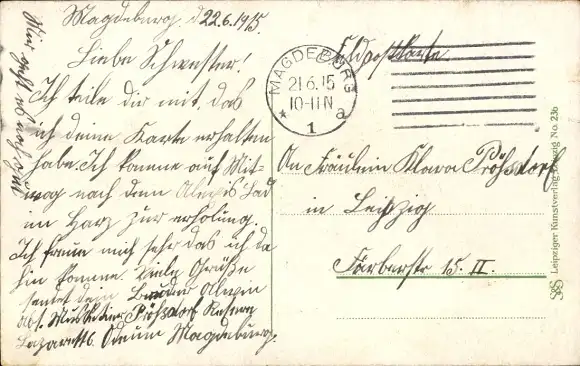 Magdeburg d 22.6.1915.
Liebe Schwester!
Ich teile dir mit, das
ich deine Karte erhalten
habe. Ich komme auf Mit-
wog nach dem Bad
im Harz zur erholung.
Ich freue mich sehr das ich da
hin komme. Viele Grüße
sentet dein Bruder Alwin
Abs. Musketier Pröhsdorf Reserve
Lazarett 6. Odeum Magdeburg.
Feldpostkarte
MAGDEBURG
21.6.15
10-11 N
* 1 a
An Fräulein Klara Pröhsdorf
in Leipzig
Färberstr 15. II.
Leipziger Kunstverlag, Leipzig No. 23b